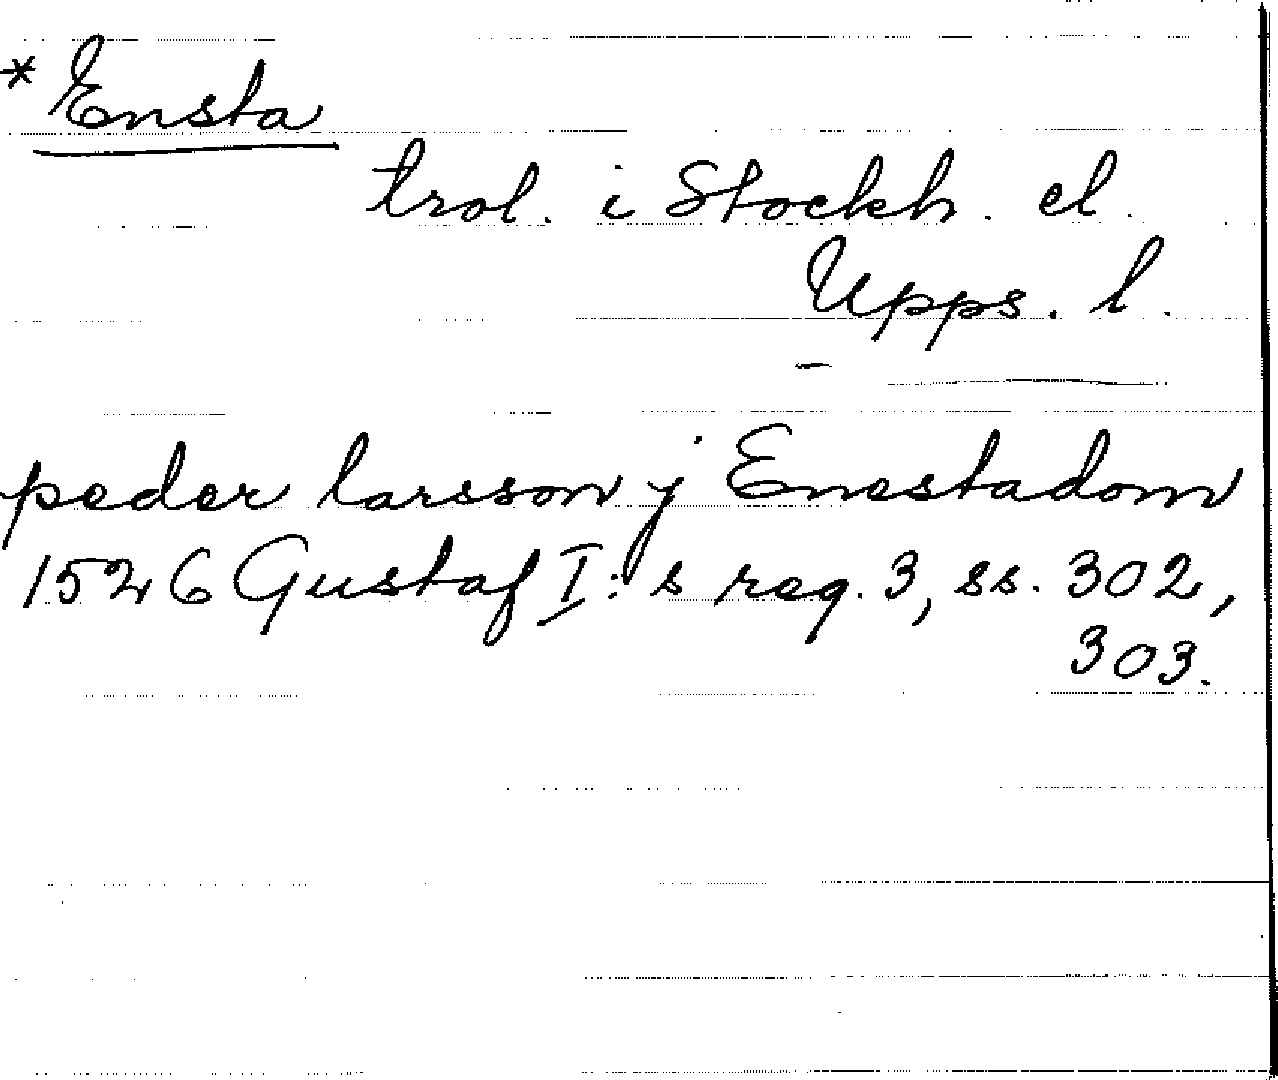 * Ensta
trol. i Stockh. el.
Upps. l.
peder larsson j Enestadom
1526 Gustaf I:s reg. 3, ss. 302,
303.